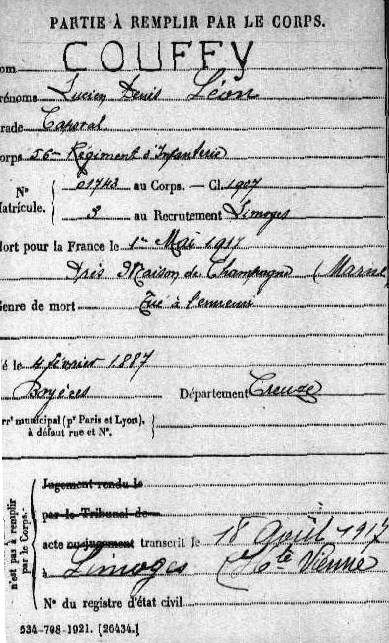 PARTIE À REMPLIR PAR LE CORPS.
COUFFY
om
rénoms Lucien Denis Léon
rade Caporal
orps 56me Régiment d'Infanterie
N° 01743 au Corps. — Cl. 1907
atricule. 3 au Recrutement Limoges
ort pour la France le 1er Mai 1917
Près Maison de Champagne (Marne
enre de mort Tué à l'ennemi
é le 4 février 1887
Département Creuse
rr' municipal (pr Paris et Lyon),
à défaut rue et N°.
Jugement rendu le
par le Tribunal de
acte ou jugement transcrit le 18 Août 1917
à Limoges (Hte Vienne
N° du registre d'état civil
n'est pas à remplir
par le Corps.
534-708-1921. [26434.]